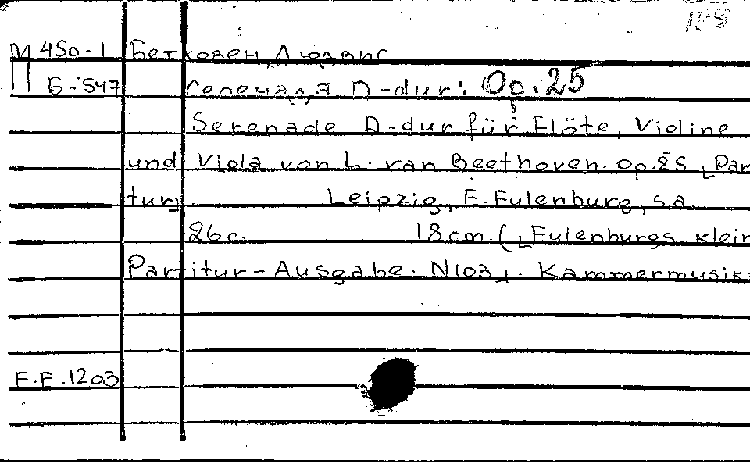 М 450-1 Бетховен, Людвиг
Б-547 Серенада D-dur: Op.25
Serenade D-dur für Flöte, Violine
und Viola von L. van Beethoven. Op.25 [Par
tur]. Leipzig, E. Eulenburg, s.a.
26 c. 18 cm ([Eulenburgs klein
Partitur-Ausgabe. N103]. Kammermusik
E.E.1203